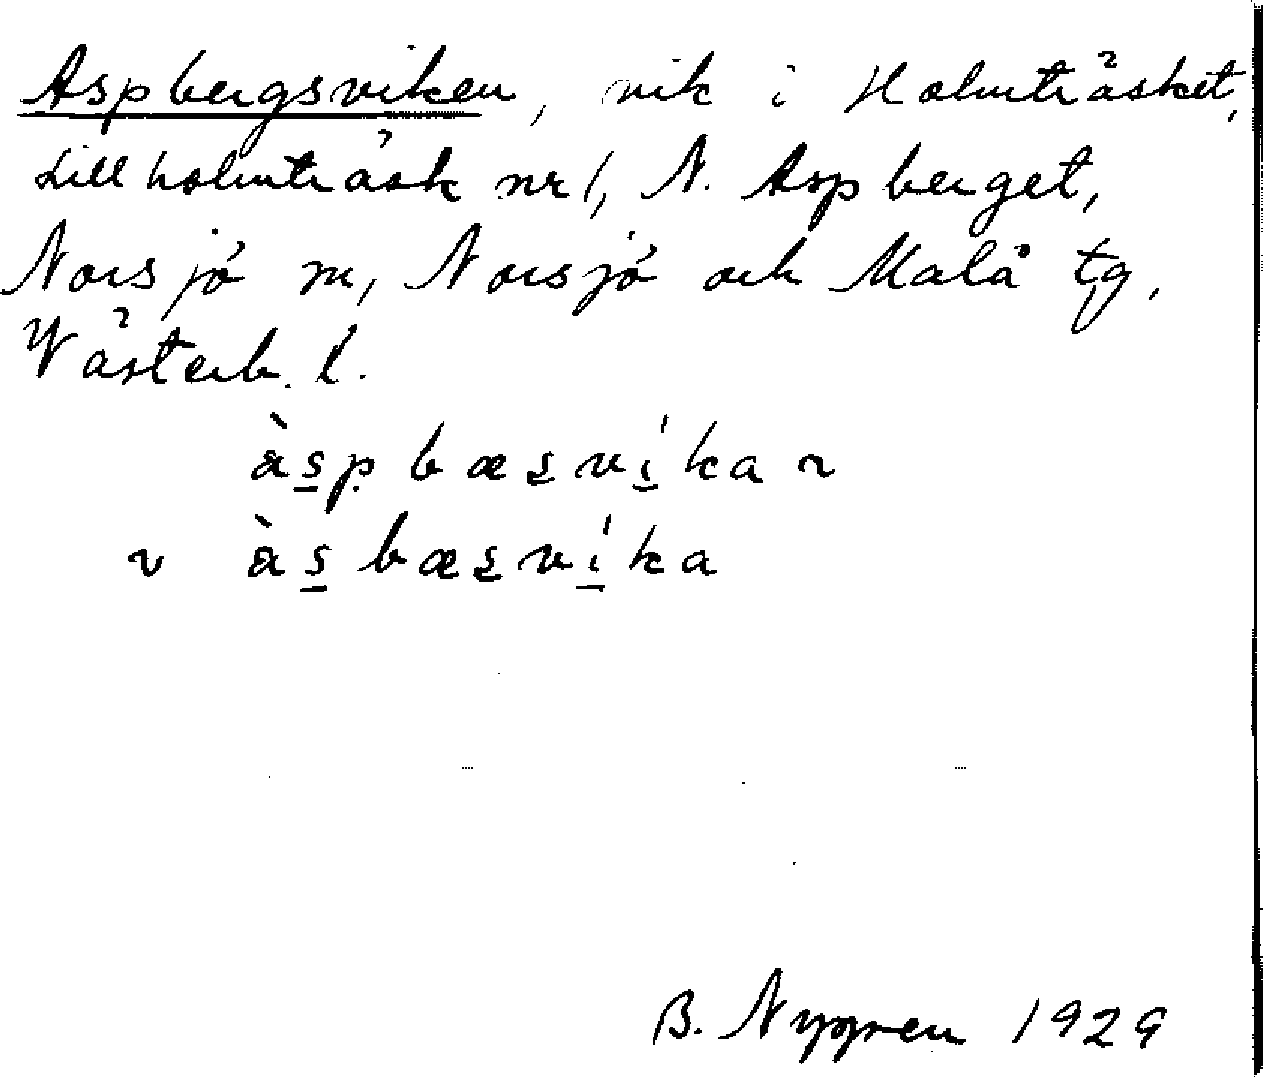 Aspbergsviken, vik i Holmträsket,
Lillholmträsk nr 1, N. Aspberget,
Norsjö sn, Norsjö och Malå tg,
Västerb. l.
àspbæsvíka ~
~ àsbæsvíka
B. Nygren 1929